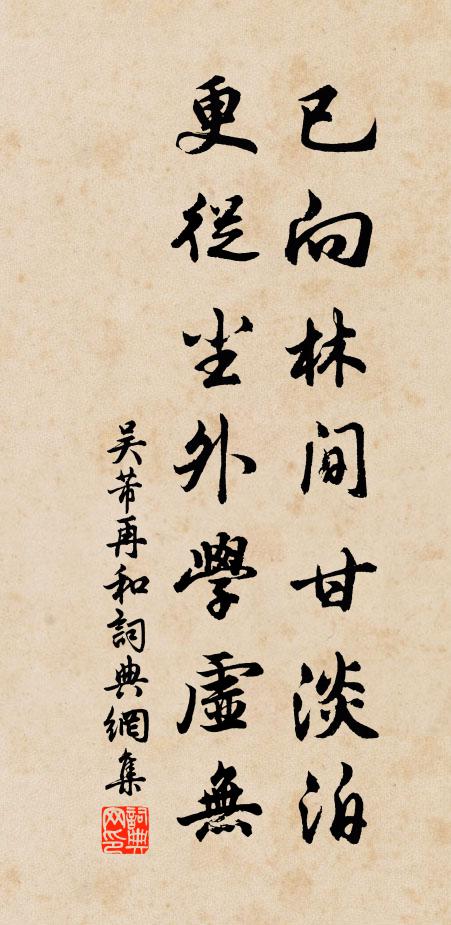 已向林間甘淡泊
更從尘外學虛無
吴芾再和詞典網集
詞典网印